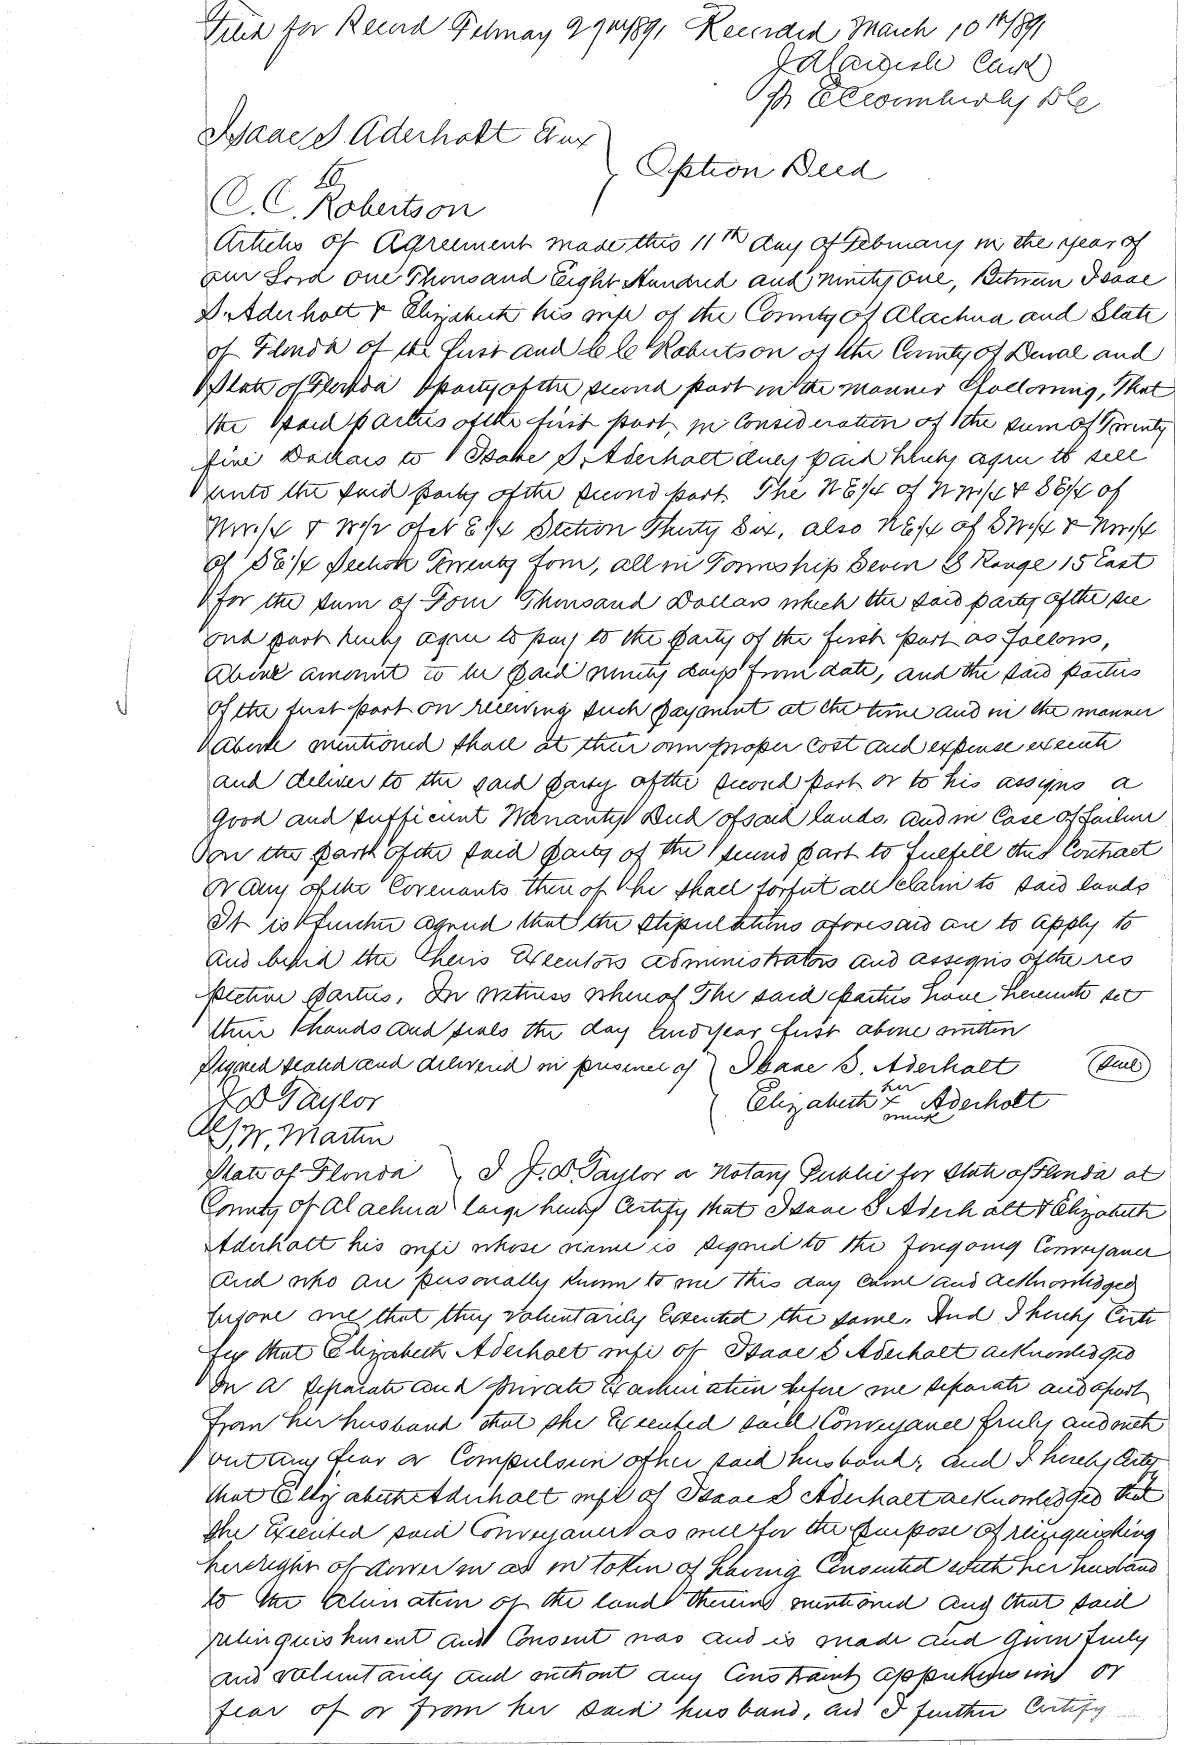 Filed for Record February 27th 1891 Recorded March 10th 1891
J A Carlisle Clerk
Pr D.C.
Isaac S. Aderholt Et ux
to
Option Deed
C. C. Robertson
Articles of Agreement made this 11th day of February in the year of
our Lord one Thousand Eight Hundred and Ninety one, Between Isaac
S. Aderholt & Elizabeth his wife of the County of Alachua and State
of Florida of the first and C C Robertson of the County of Duval and
State of Florida party of the second part in the manner following, That
the said parties of the first part, in Consideration of the sum of Twenty
five Dollars to Isaac S. Aderholt duly paid hereby agree to sell
unto the said party of the second part. The NE1/4 of NW1/4 & SE1/4 of
NW1/4 & W1/2 of NE1/4 Section Thirty Six, also NE1/4 of SW1/4 & NW1/4
of SE1/4 Section Twenty four, all in Township Seven S Range 15 East
for the sum of Four Thousand Dollars which the said party of the sec
ond part hereby agree to pay to the party of the first part as follows,
above amount to be paid ninety days from date, and the said parties
of the first part on receiving such payment at the time and in the manner
above mentioned shall at their own proper cost and expense execute
and deliver to the said party of the second part or to his assigns a
good and sufficient Warranty Deed of said lands. and in Case of failure
on the part of the said party of the second part to fulfill this Contract
or any of the Covenants thereof he shall forfeit all claim to said lands
It is further agreed that the stipulations aforesaid are to apply to
and bind the heirs Executors administrators and assigns of the res
pective parties. In witness whereof The said parties have hereunto set
their hands and seals the day and year first above written
Signed sealed and delivered in presence of Isaac S. Aderholt (Seal)
J D Taylor Elizabeth her x mark Aderholt
W. Martin
State of Florida I J. D. Taylor a Notary Public for State of Florida at
County of Alachua large hereby Certify that Isaac S Aderholt & Elizabeth
Aderholt his wife whose name is signed to the foregoing Conveyance
and who are personally known to me this day came and acknowledged
before me that they voluntarily Executed the same. And I hereby Certi
fy that Elizabeth Aderholt wife of Isaac S Aderholt acknowledged
on a separate and private Examination before me separate and apart
from her husband that she Executed said Conveyance freely and with
out any fear or Compulsion of her said husband; and I hereby Certify
that Elizabeth Aderholt wife of Isaac S Aderholt acknowledged that
she Executed said Conveyance as well for the purpose of relinquishing
her right of dower in as in token of having Consented with her husband
to the alienation of the land therein mentioned and that said
relinquishment and Consent was and is made and given freely
and voluntarily and without any Constraint apprehension or
fear of or from her said husband, and I further Certify